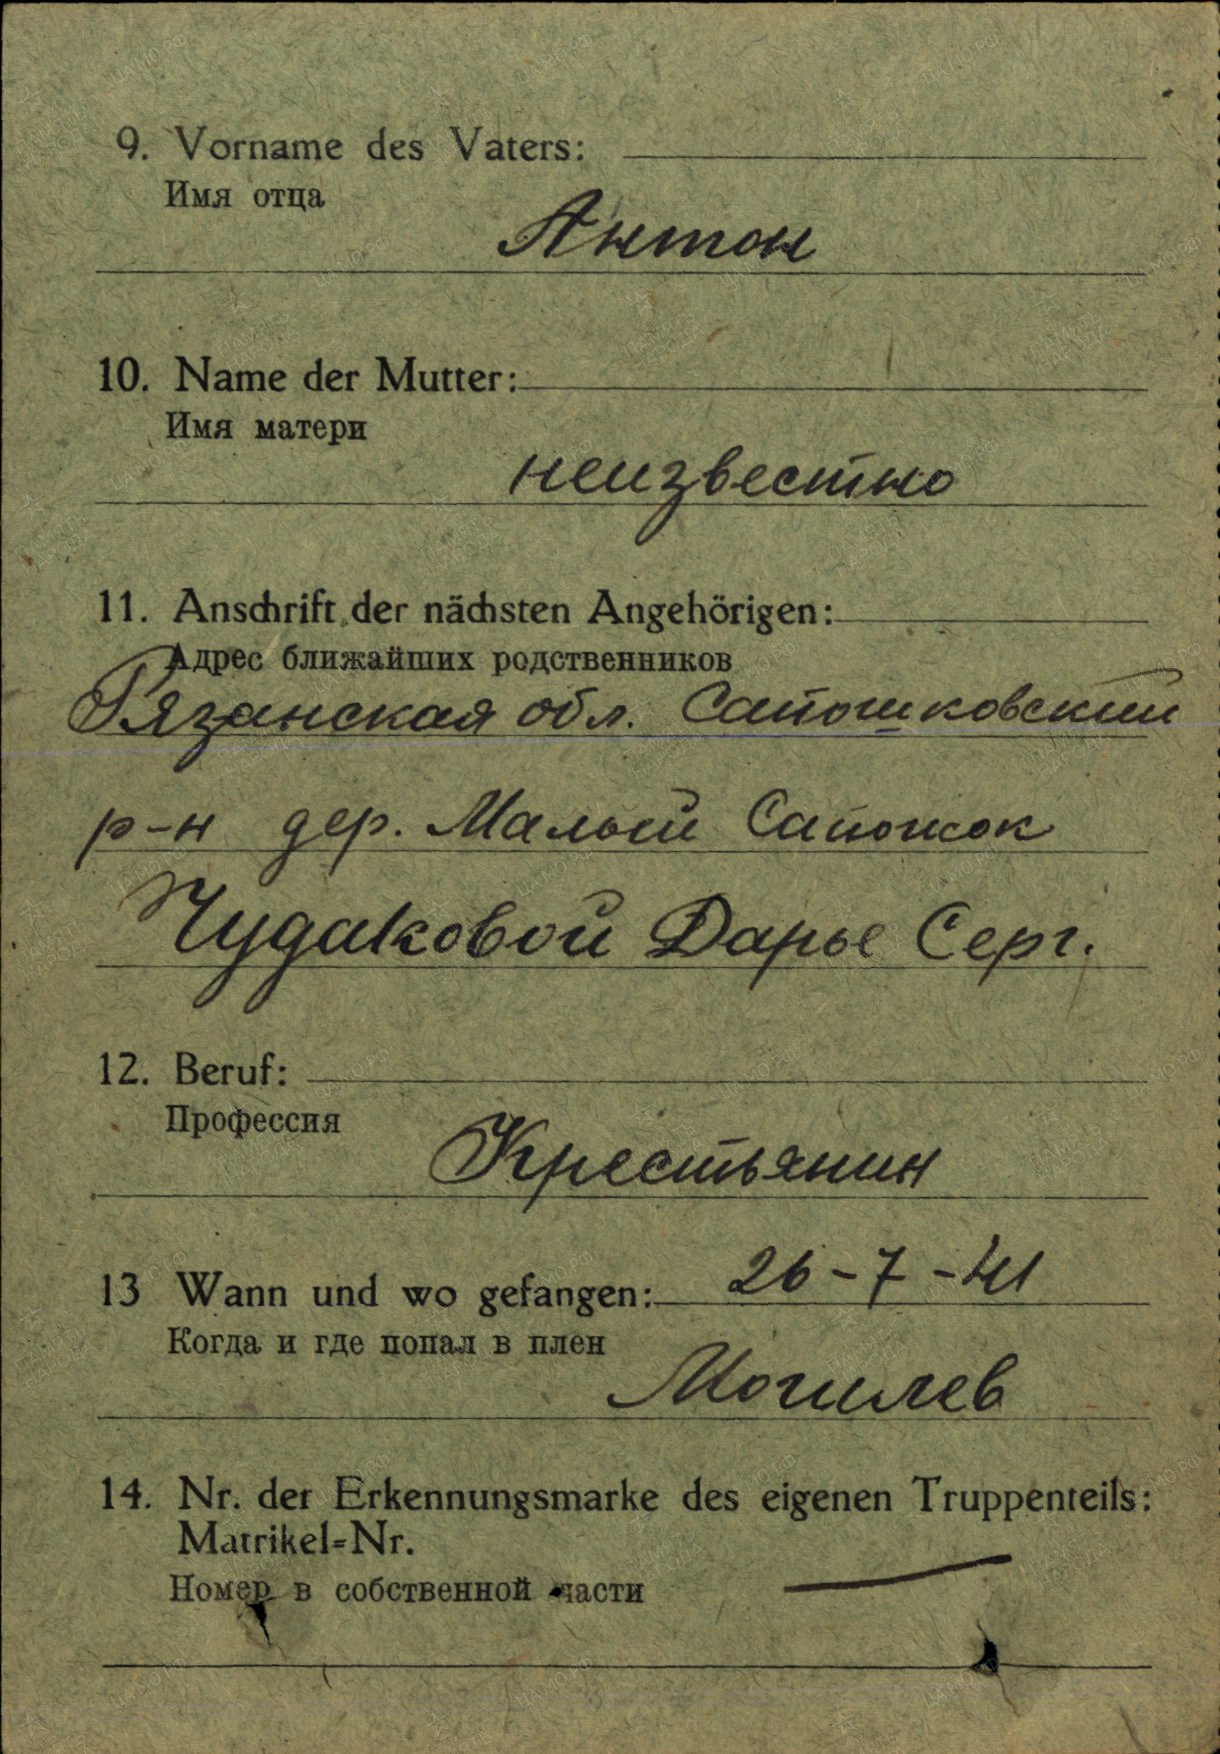 9. Vorname des Vaters:
Имя отца
Антон
10. Name der Mutter:
Имя матери
неизвестно
11. Anschrift der nächsten Angehörigen:
Адрес ближайших родственников
Рязанская обл. Сапошковский
р-н дер. Малый Сапожок
Чудаковой Дарье Серг.
12. Beruf:
Профессия
Крестьянин
13 Wann und wo gefangen: 26-7-41
Когда и где попал в плен
Могилев
14. Nr. der Erkennungsmarke des eigenen Truppenteils:
Matrikel=Nr.
Номер в собственной части —